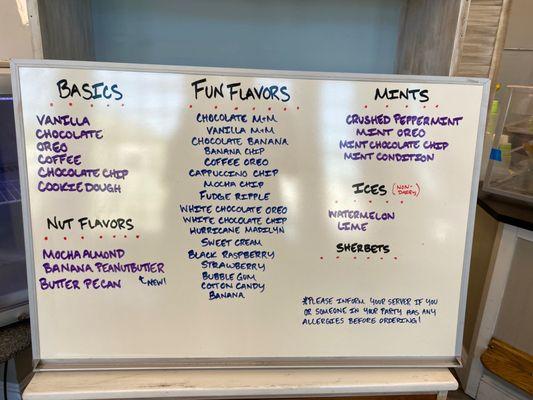 BASICS
VANILLA
CHOCOLATE
OREO
COFFEE
CHOCOLATE CHIP
COOKIE DOUGH
NUT FLAVORS
MOCHA ALMOND
BANANA PEANUTBUTTER
BUTTER PECAN
NEW!
FUN FLAVORS
CHOCOLATE M&M
VANILLA M&M
CHOCOLATE BANANA
BANANA CHIP
COFFEE OREO
CAPPUCCINO CHIP
MOCHA CHIP
FUDGE RIPPLE
WHITE CHOCOLATE OREO
WHITE CHOCOLATE CHIP
HURRICANE MADILYN
SWEET CREAM
BLACK RASPBERRY
STRAWBERRY
BUBBLE GUM
COTTON CANDY
BANANA
MINTS
CRUSHED PEPPERMINT
MINT OREO
MINT CHOCOLATE CHIP
MINT CONDITION
ICES (NON-DAIRY)
WATERMELON
LIME
SHERBETS
*PLEASE INFORM YOUR SERVER IF YOU
OR SOMEONE IN YOUR PARTY HAS ANY
ALLERGIES BEFORE ORDERING!